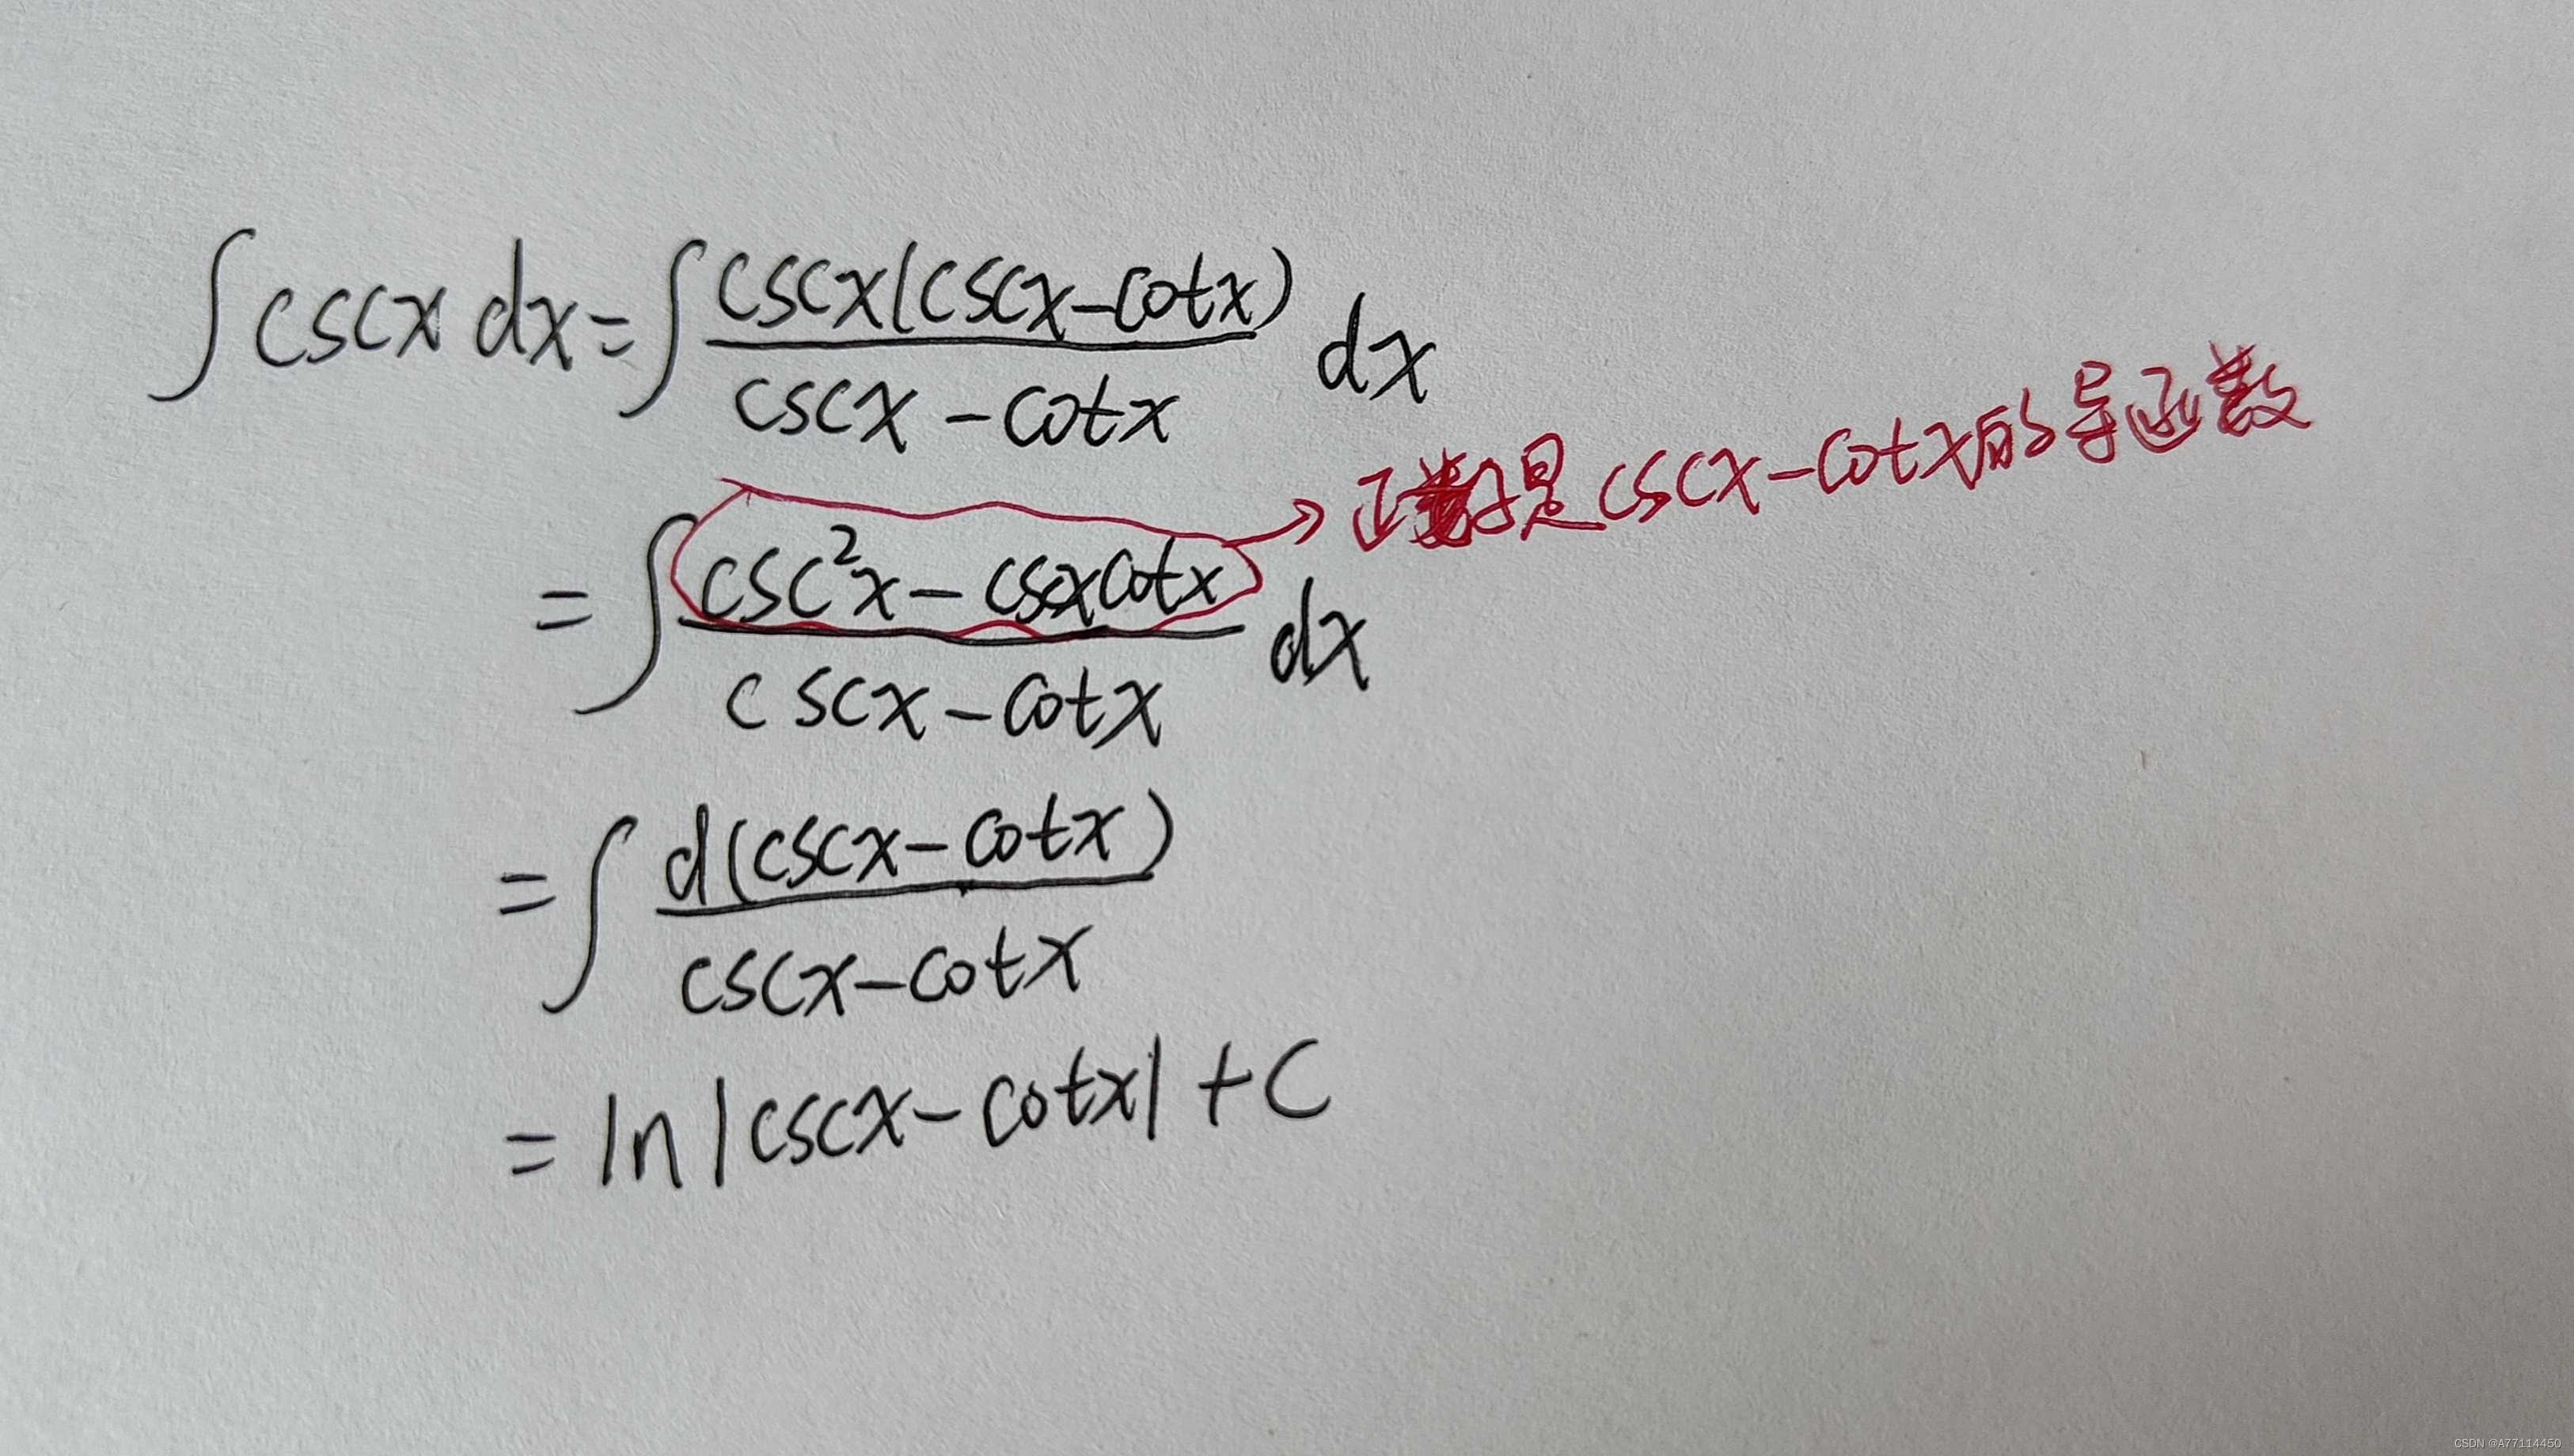 ∫cscx dx = ∫ cscx(cscx-cotx) / cscx-cotx dx
= ∫ csc²x - cscxcotx / cscx-cotx dx → 正好是cscx-cotx的导函数
= ∫ d(cscx-cotx) / cscx-cotx
= ln|cscx-cotx| + C
CSDN @A77114450